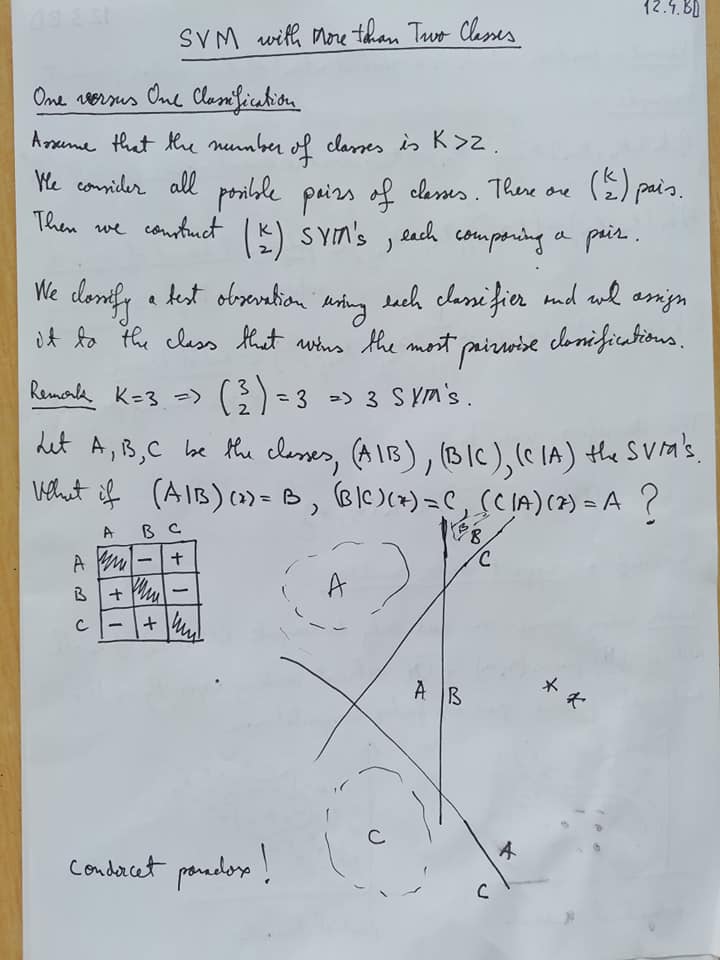 12.4.BD
SVM with More than Two Classes
One versus One Classification
Assume that the number of classes is K>2.
We consider all posible pairs of classes. There are (K 2) pairs.
Then we construct (K 2) SVM's, each comparing a pair.
We classify a test observation using each classifier and will assign
it to the class that wins the most pairwise classifications.
Remark K=3 => (3 2) = 3 => 3 SVM's.
Let A, B, C be the classes, (A|B), (B|C), (C|A) the SVM's.
What if (A|B)(x)=B, (B|C)(x)=C, (C|A)(x)=A ?
A B C
A - +
B + -
C - +
A
B
C
A B
C
A
C
Condorcet paradox!